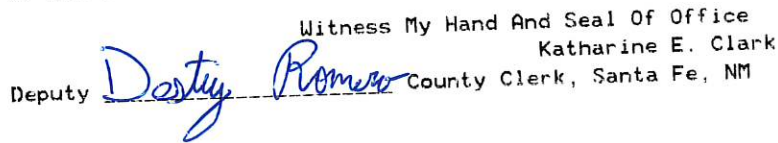 Witness My Hand And Seal Of Office
Katharine E. Clark
Deputy Destiny Romero County Clerk, Santa Fe, NM